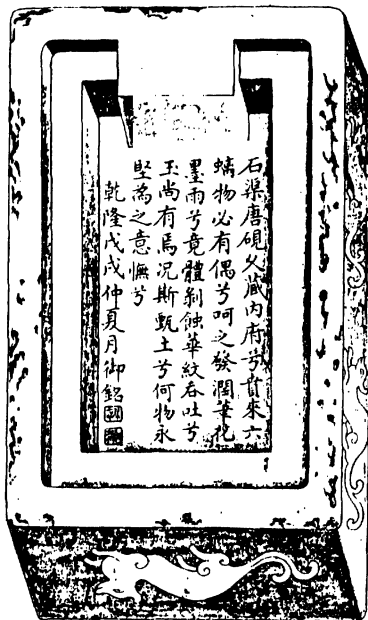 石渠唐硯久藏內府兮賁來六
螭物必有偶兮呵之發潤筆花
墨雨兮竟體剝蝕華紋吞吐兮
玉尚有焉況斯甄土兮何物永
堅為之意憮兮
乾隆戊戌仲夏月御銘